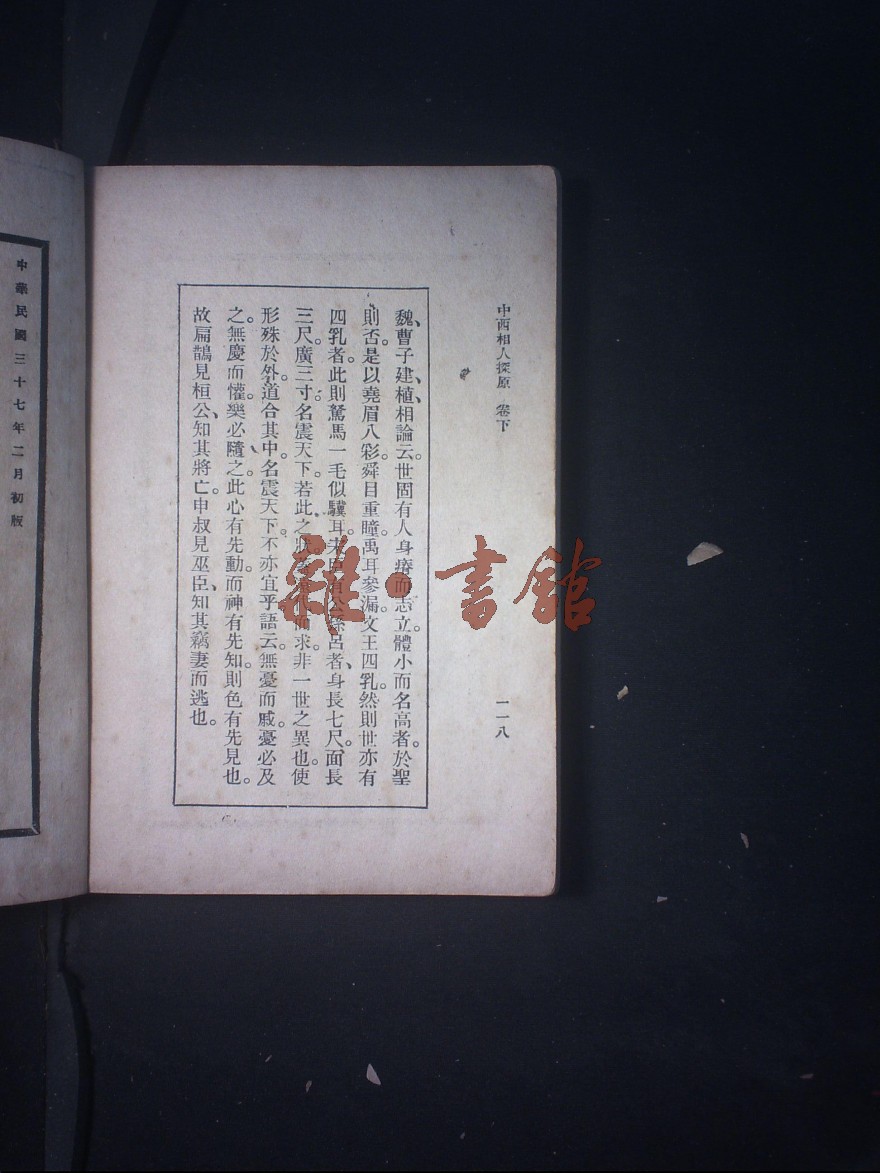 中西相人探原 卷下
一一八
魏、曹子建、植、相論云。世固有人身瘠而志立。體小而名高者。於聖
則否。是以堯眉八彩。舜目重瞳。禹耳參漏。文王四乳。然則世亦有
四乳者。此則駑馬一毛似驥耳。
呂者、身長七尺。面長
三尺。廣三寸。名震天下。若此之狀。而求。非一世之異也。使
形殊於外。道合其中。名震天下。不亦宜乎。語云。無憂而戚。憂必及
之。無慶而懽。樂必隨之。此心有先動。而神有先知。則色有先見也。
故扁鵲見桓公、知其將亡。申叔見巫臣、知其竊妻而逃也。
中華民國三十七年二月初版
雜·書館